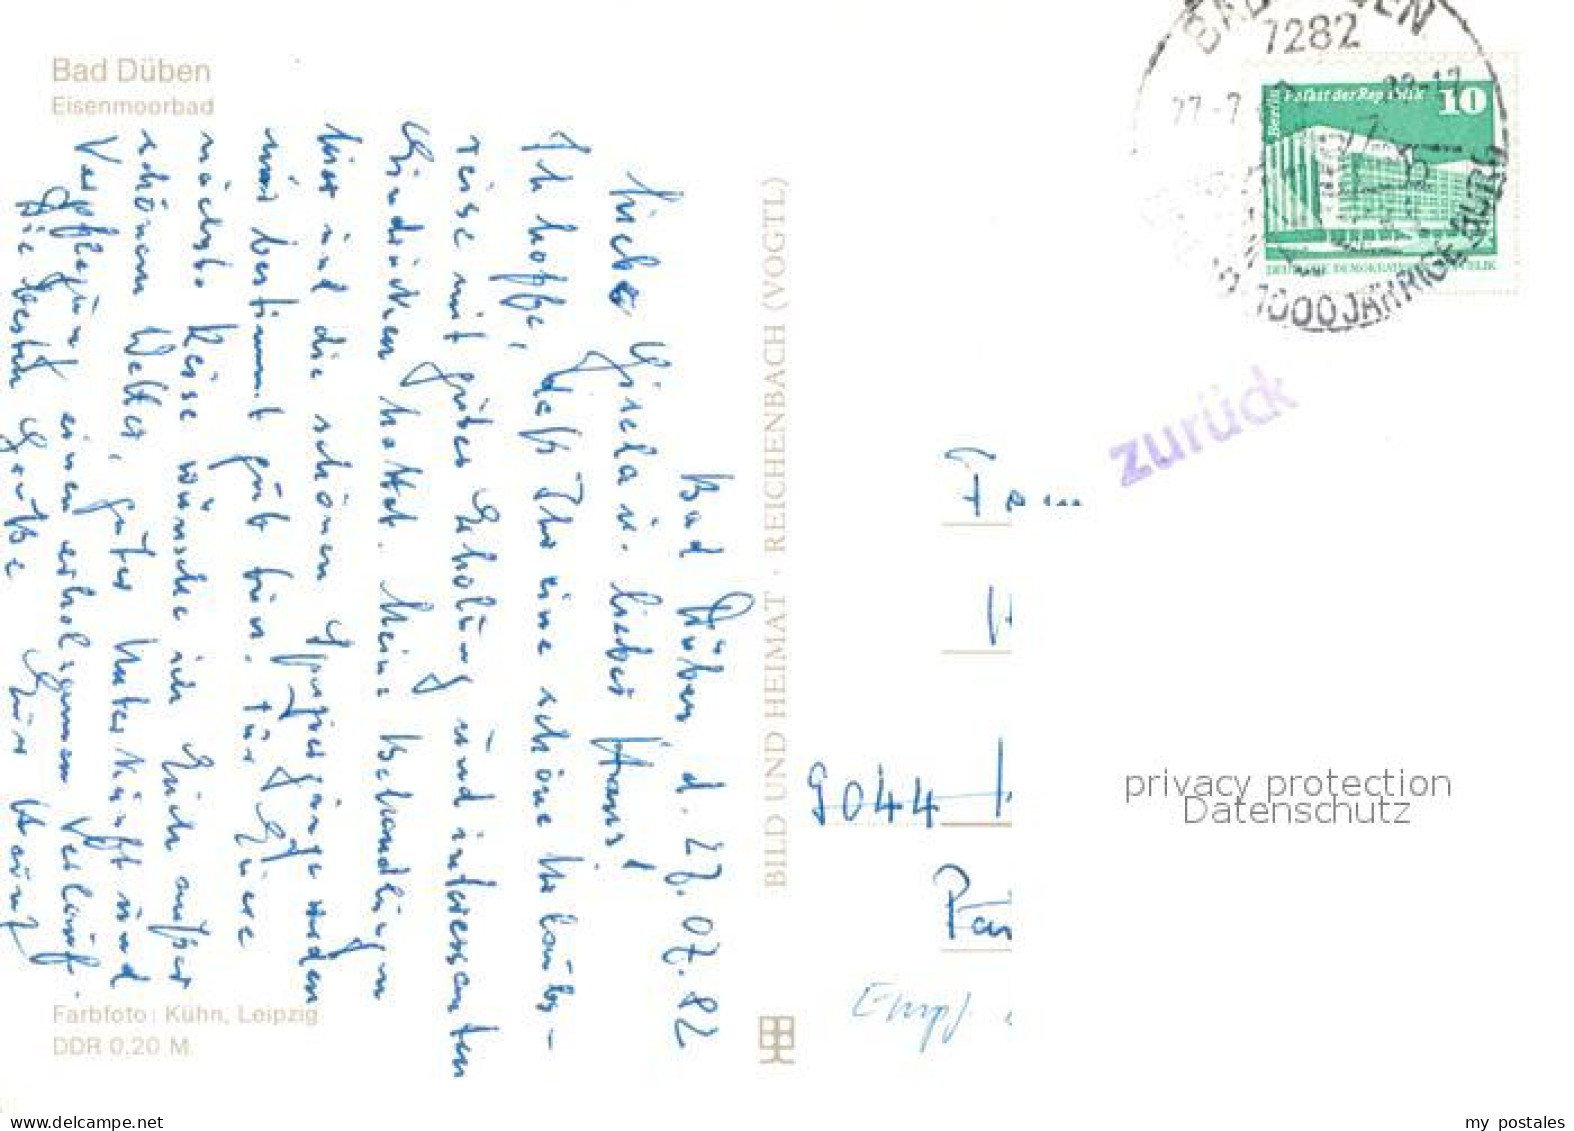 Bad Düben
Eisenmoorbad
Bad Düben d. 27.07.82
Liebe Gisela u. lieber Hans!
Ich hoffe, daß Ihr eine schöne Urlaubs-
reise mit guter Erholung und interessanten
Eindrücken hattet. Meine Behandlungen
hier und die schönen Spaziergänge werden
mir bestimmt gut tun. Für Eure
nächste Reise wünsche ich Euch außer
schönem Wetter, guter Unterkunft und
Verpflegung einen erholsamen Verlauf.
Die besten Grüße Eure
Farbfoto: Kühn, Leipzig
DDR 0,20 M
BILD UND HEIMAT · REICHENBACH (VOGTL)
7282
27.-7
1000JÄHRIGE BURG
Berlin Palast der Republik 10
DEUTSCHE DEMOKRATISCHE REPUBLIK
zurück
Fam
H
9044
Empf
privacy protection
Datenschutz
www.delcampe.net
my_postales